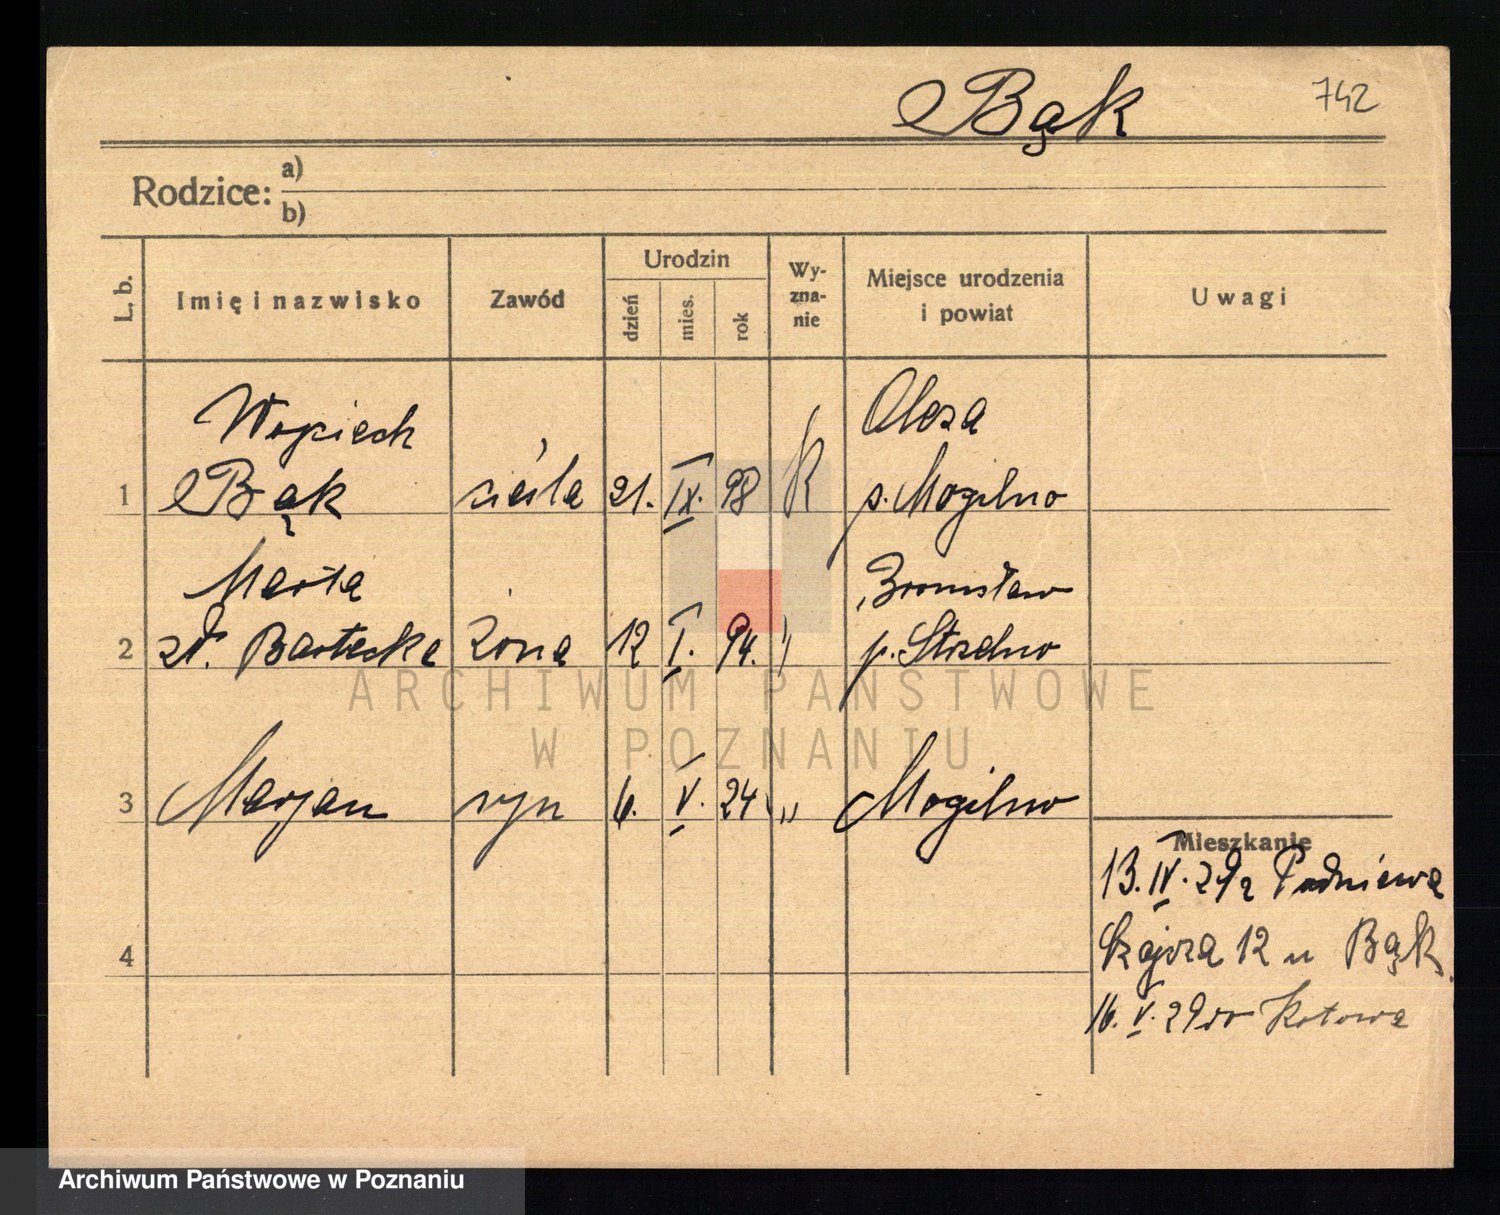 Bąk
742
Rodzice: a)
b)
L. b.
Imię i nazwisko
Zawód
Urodzin
dzień
mies.
rok
Wy-
zna-
nie
Miejsce urodzenia
i powiat
Uwagi
Wojciech
1 Bąk cieśla 21. IX. 98 K
Olsza
p. Mogilno
Marta
2 zd. Bartecka żona 12 I. 94. "
Bronisław
p. Strzelno
3 Marjan syn 6. V. 24 " Mogilno
4
Mieszkanie
13. IV. 29 z Padniewa
12 u Bąk.
16. V. 29 do Kotowa
ARCHIWUM PAŃSTWOWE
W POZNANIU
Archiwum Państwowe w Poznaniu